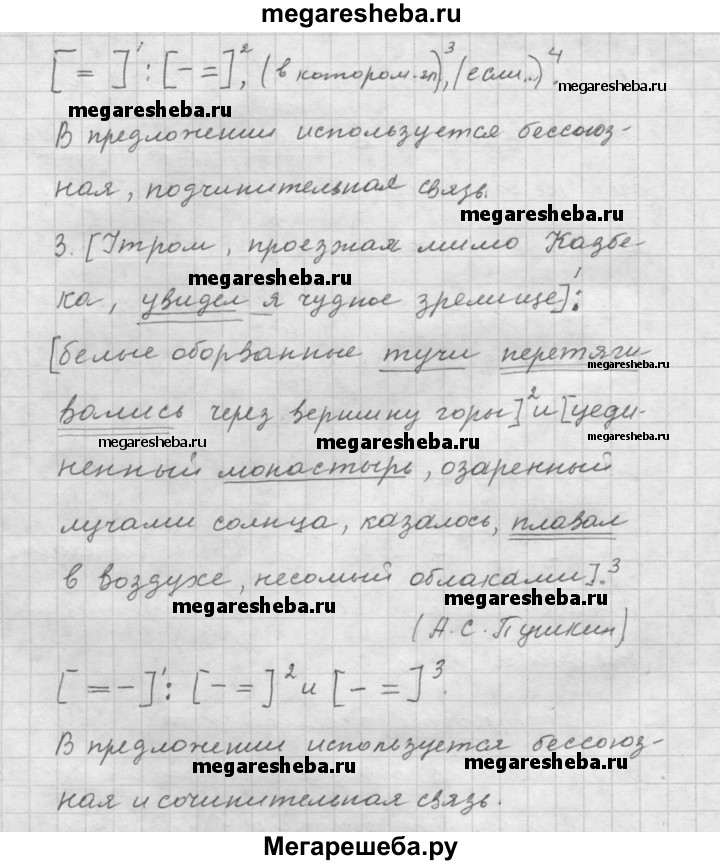 megaresheba.ru
[ = ]¹: [ - = ]², (в котором-гл)³, (если..)⁴.
megaresheba.ru
В предложении используется бессоюз-
ная, подчинительная связь.
megaresheba.ru
3. [Утром, проезжая мимо Казбе-
megaresheba.ru
ка, увидел я чудное зрелище]¹:
[белые оборванные тучи перетяги-
megaresheba.ru
вались через вершину горы]² и [уеди-
megaresheba.ru megaresheba.ru
ненный монастырь, озаренный
лучами солнца, казалось, плавал
в воздухе, несомый облаками].³
megaresheba.ru megaresheba.ru
(А.С.Пушкин)
[ = - ]¹: [ - = ]² и [ - = ]³.
В предложении используется бессоюз-
megaresheba.ru megaresheba.ru
ная и сочинительная связь.
Мегарешеба.ру